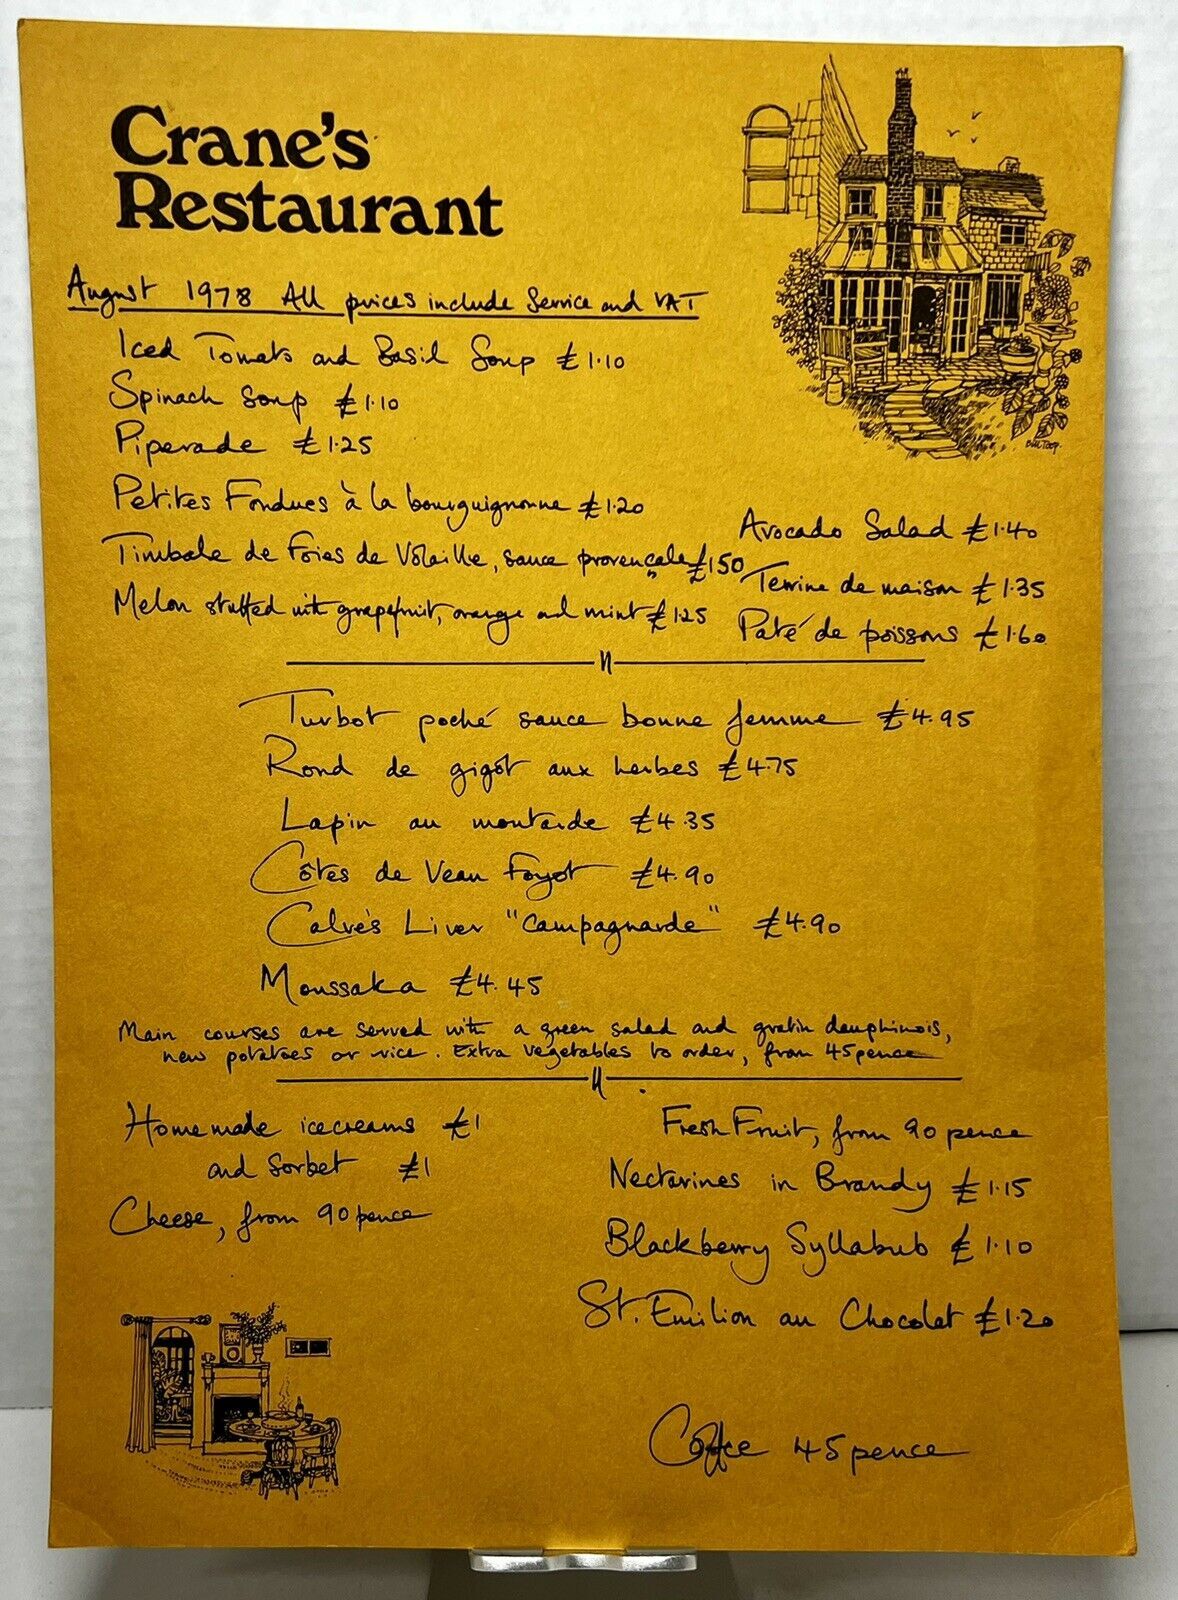 Crane's
Restaurant
August 1978 All prices include Service and VAT
Iced Tomato and Basil Soup £1.10
Spinach Soup £1.10
Piperade £1.25
Petites Fondues à la bourguignonne £1.20
Timbale de Foies de Volaille, sauce provençale £1.50
Melon stuffed with grapefruit, orange and mint £1.25
Avocado Salad £1.40
Terrine de maison £1.35
Paté de poissons £1.60
Turbot poché sauce bonne femme £4.95
Rond de gigot aux herbes £4.75
Lapin au moutarde £4.35
Côtes de Veau Foyot £4.90
Calve's Liver "Campagnarde" £4.90
Moussaka £4.45
Main courses are served with a green salad and gratin dauphinois,
new potatoes or rice. Extra vegetables to order, from 45 pence
Homemade icecreams £1
and Sorbet £1
Cheese, from 90 pence
Fresh Fruit, from 90 pence
Nectarines in Brandy £1.15
Blackberry Syllabub £1.10
St. Emilion au Chocolat £1.20
Coffee 45 pence